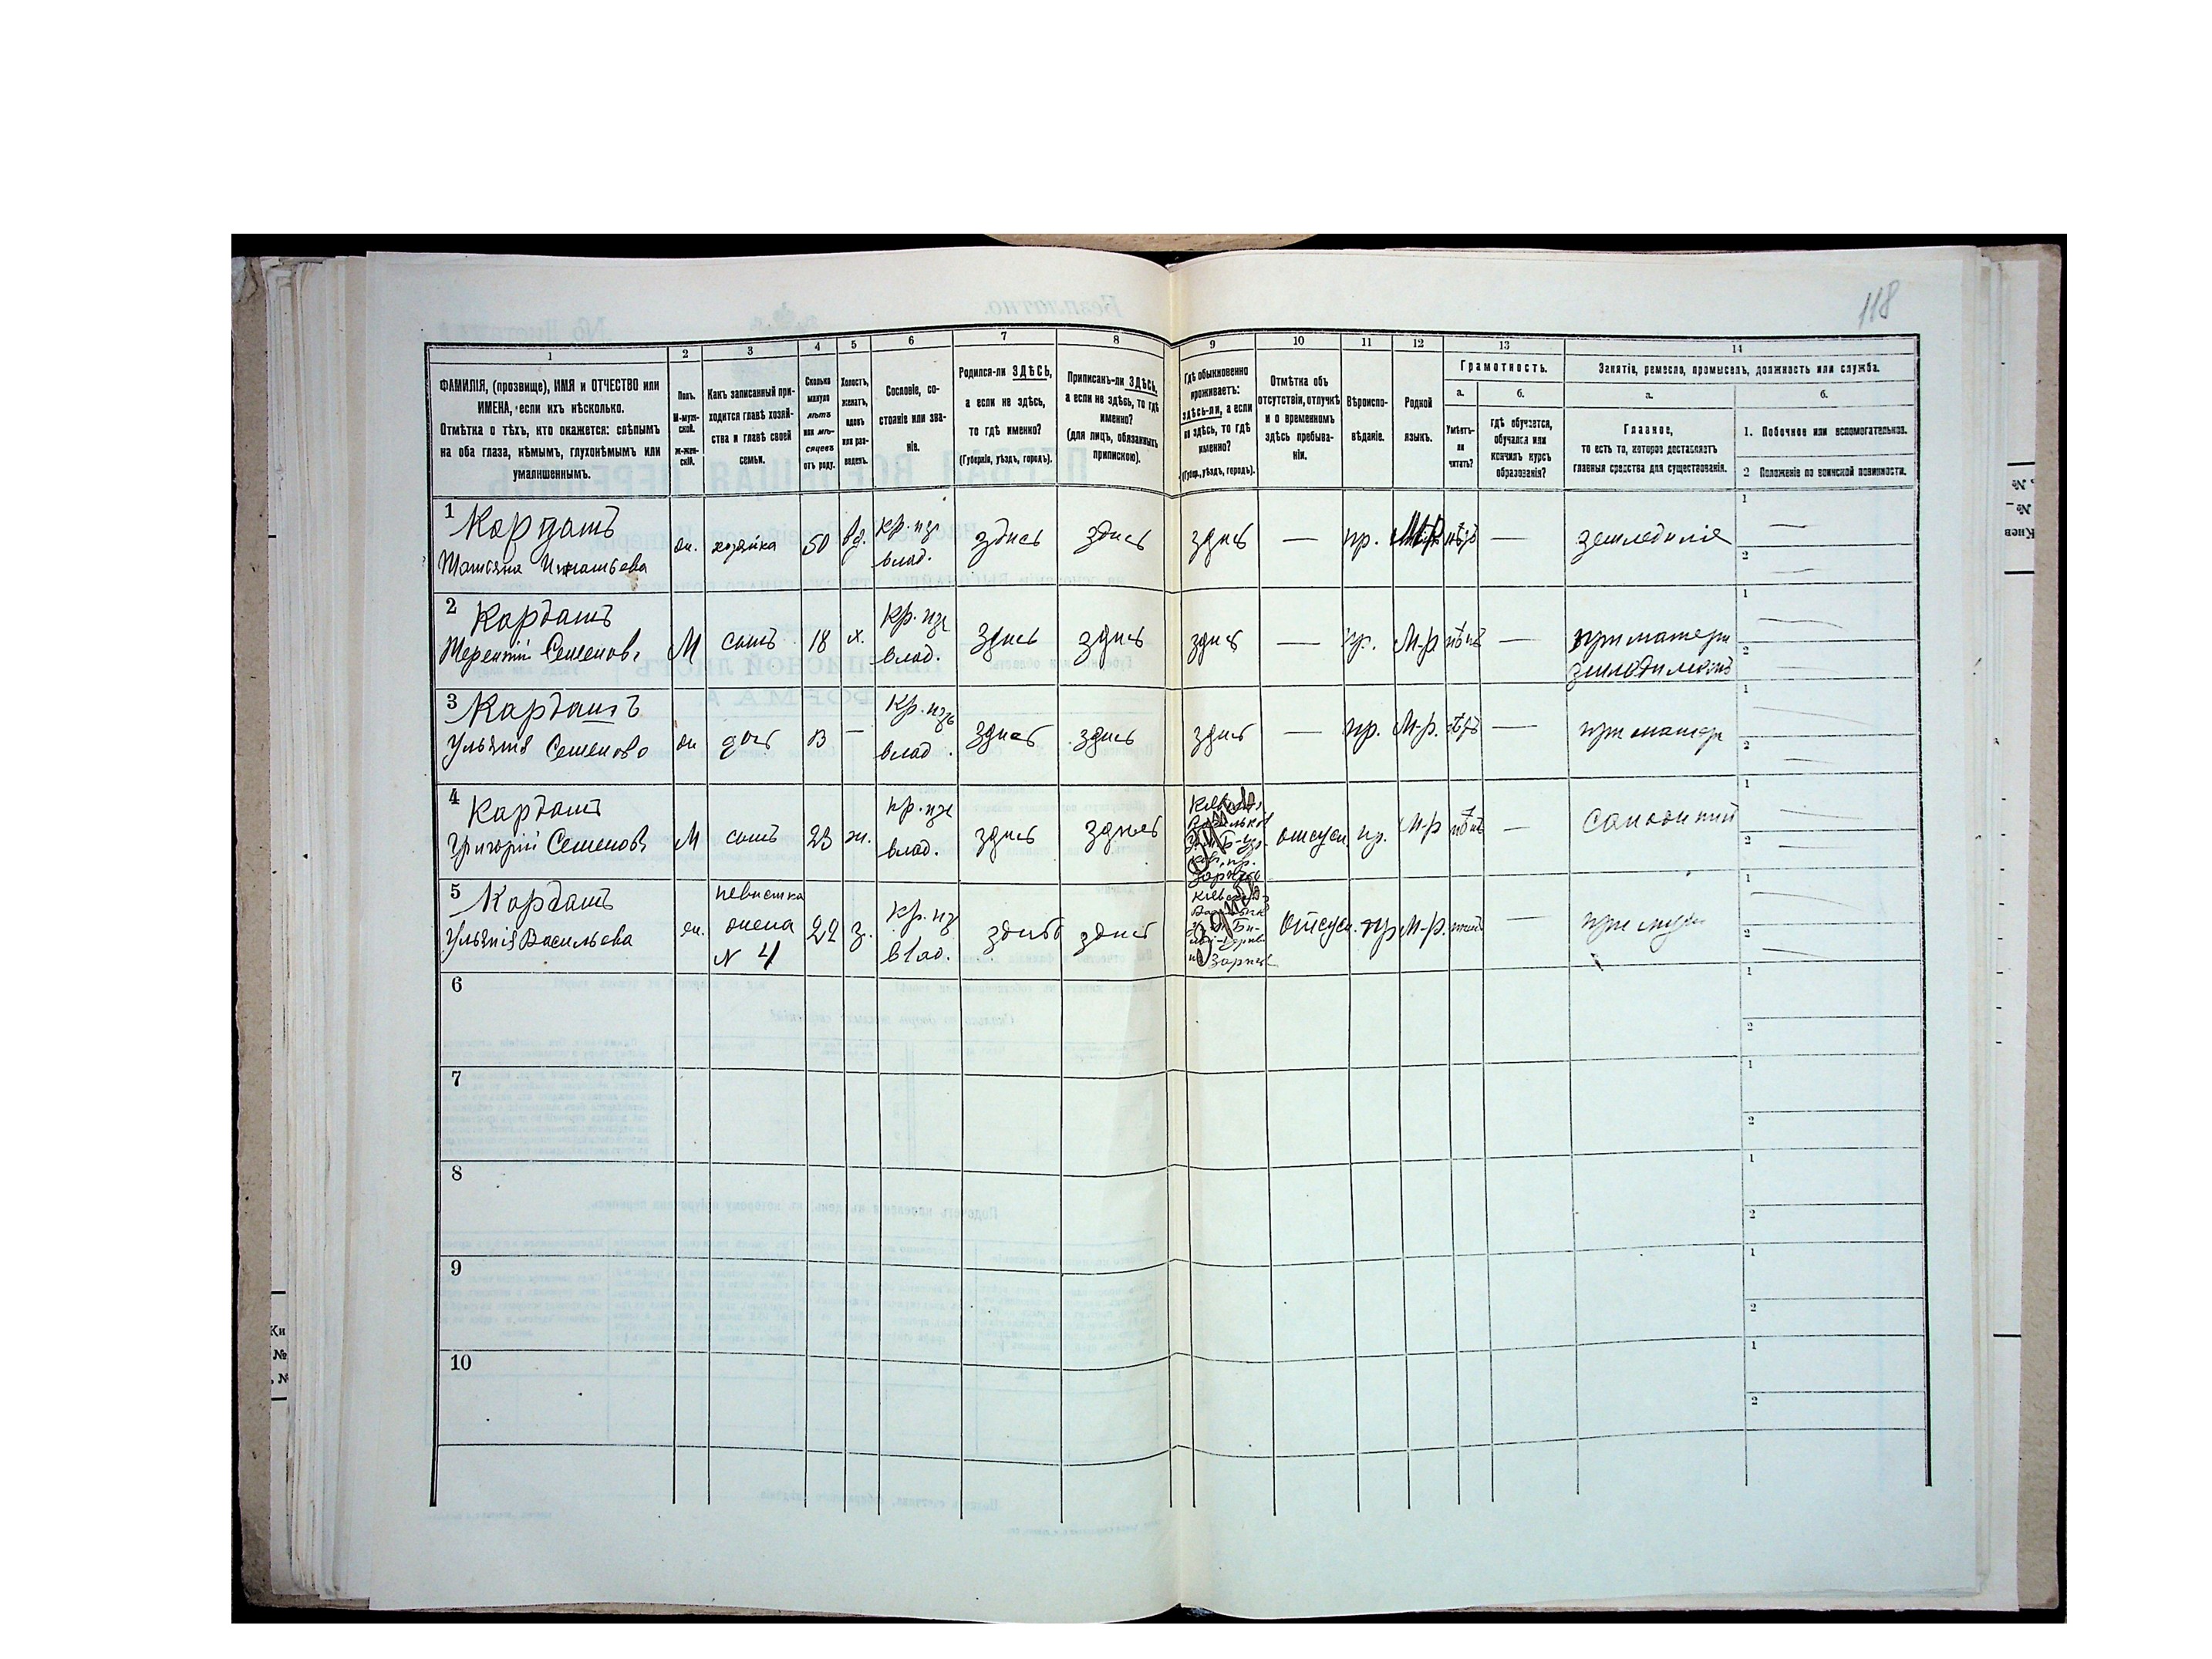 118
1 2 3 4 5 6 7 8 9 10 11 12 13 14
ФАМИЛІЯ, (прозвище), ИМЯ и ОТЧЕСТВО или
ИМЕНА, если ихъ нѣсколько.
Отмѣтка о тѣхъ, кто окажется: слѣпымъ
на оба глаза, нѣмымъ, глухонѣмымъ или
умалишеннымъ.
Полъ.
М-муж-
ской.
ж-жен-
скій.
Какъ записанный при-
ходится главѣ хозяй-
ства и главѣ своей
семьи.
Сколько
минуло
лѣтъ
или мѣ-
сяцевъ
отъ роду.
Холостъ,
женатъ,
вдовъ
или раз-
веденъ.
Сословіе, со-
стояніе или зва-
ніе.
Родился-ли ЗДѢСЬ,
а если не здѣсь,
то гдѣ именно?
(Губернія, уѣздъ, городъ).
Приписанъ-ли ЗДѢСЬ,
а если не здѣсь, то гдѣ
именно?
(для лицъ, обязанныхъ
припискою).
Гдѣ обыкновенно
проживаетъ:
здѣсь-ли, а если
не здѣсь, то гдѣ
именно?
(Губер., уѣздъ, городъ).
Отмѣтка объ
отсутствіи, отлучкѣ
и о временномъ
здѣсь пребыва-
ніи.
Вѣроиспо-
вѣданіе.
Родной
языкъ.
Грамотность.
а.
Умѣетъ-
ли
читать?
б.
гдѣ обучается,
обучался или
кончилъ курсъ
образованія?
Занятіе, ремесло, промыселъ, должность или служба.
а.
Главное,
то есть то, которое доставляетъ
главныя средства для существованія.
б.
1. Побочное или вспомогательное.
2 Положеніе по воинской повинности.
1 Кардашъ
Татіяна Игнатьева
ж. хозяйка 50 вд. кр. изъ
влад.
здись здись здись — пр. М-р. — земледиліе
2 Кардашъ
Терентій Семеновъ
М сынъ 18 х. кр. изъ
влад.
здись здись здись — пр. М-р нѣтъ — при матери
3 Кардашъ
Ульянія Семенова
ж дочь 13 — кр. изъ
влад
здись здись здись — пр. М-р. — при матери
4 Кардашъ
Григорій Семеновъ
М сынъ 23 ж. кр. изъ
влад.
здись здись отсусв. пр. М-р нѣтъ —
5 Кардашъ
Ульянія Васильева
ж. невистка
жена
N 4
22 з. кр. из
влад.
здись здись отсусв. пр М-р. — при мужи
6
7
8
9
10
1
2